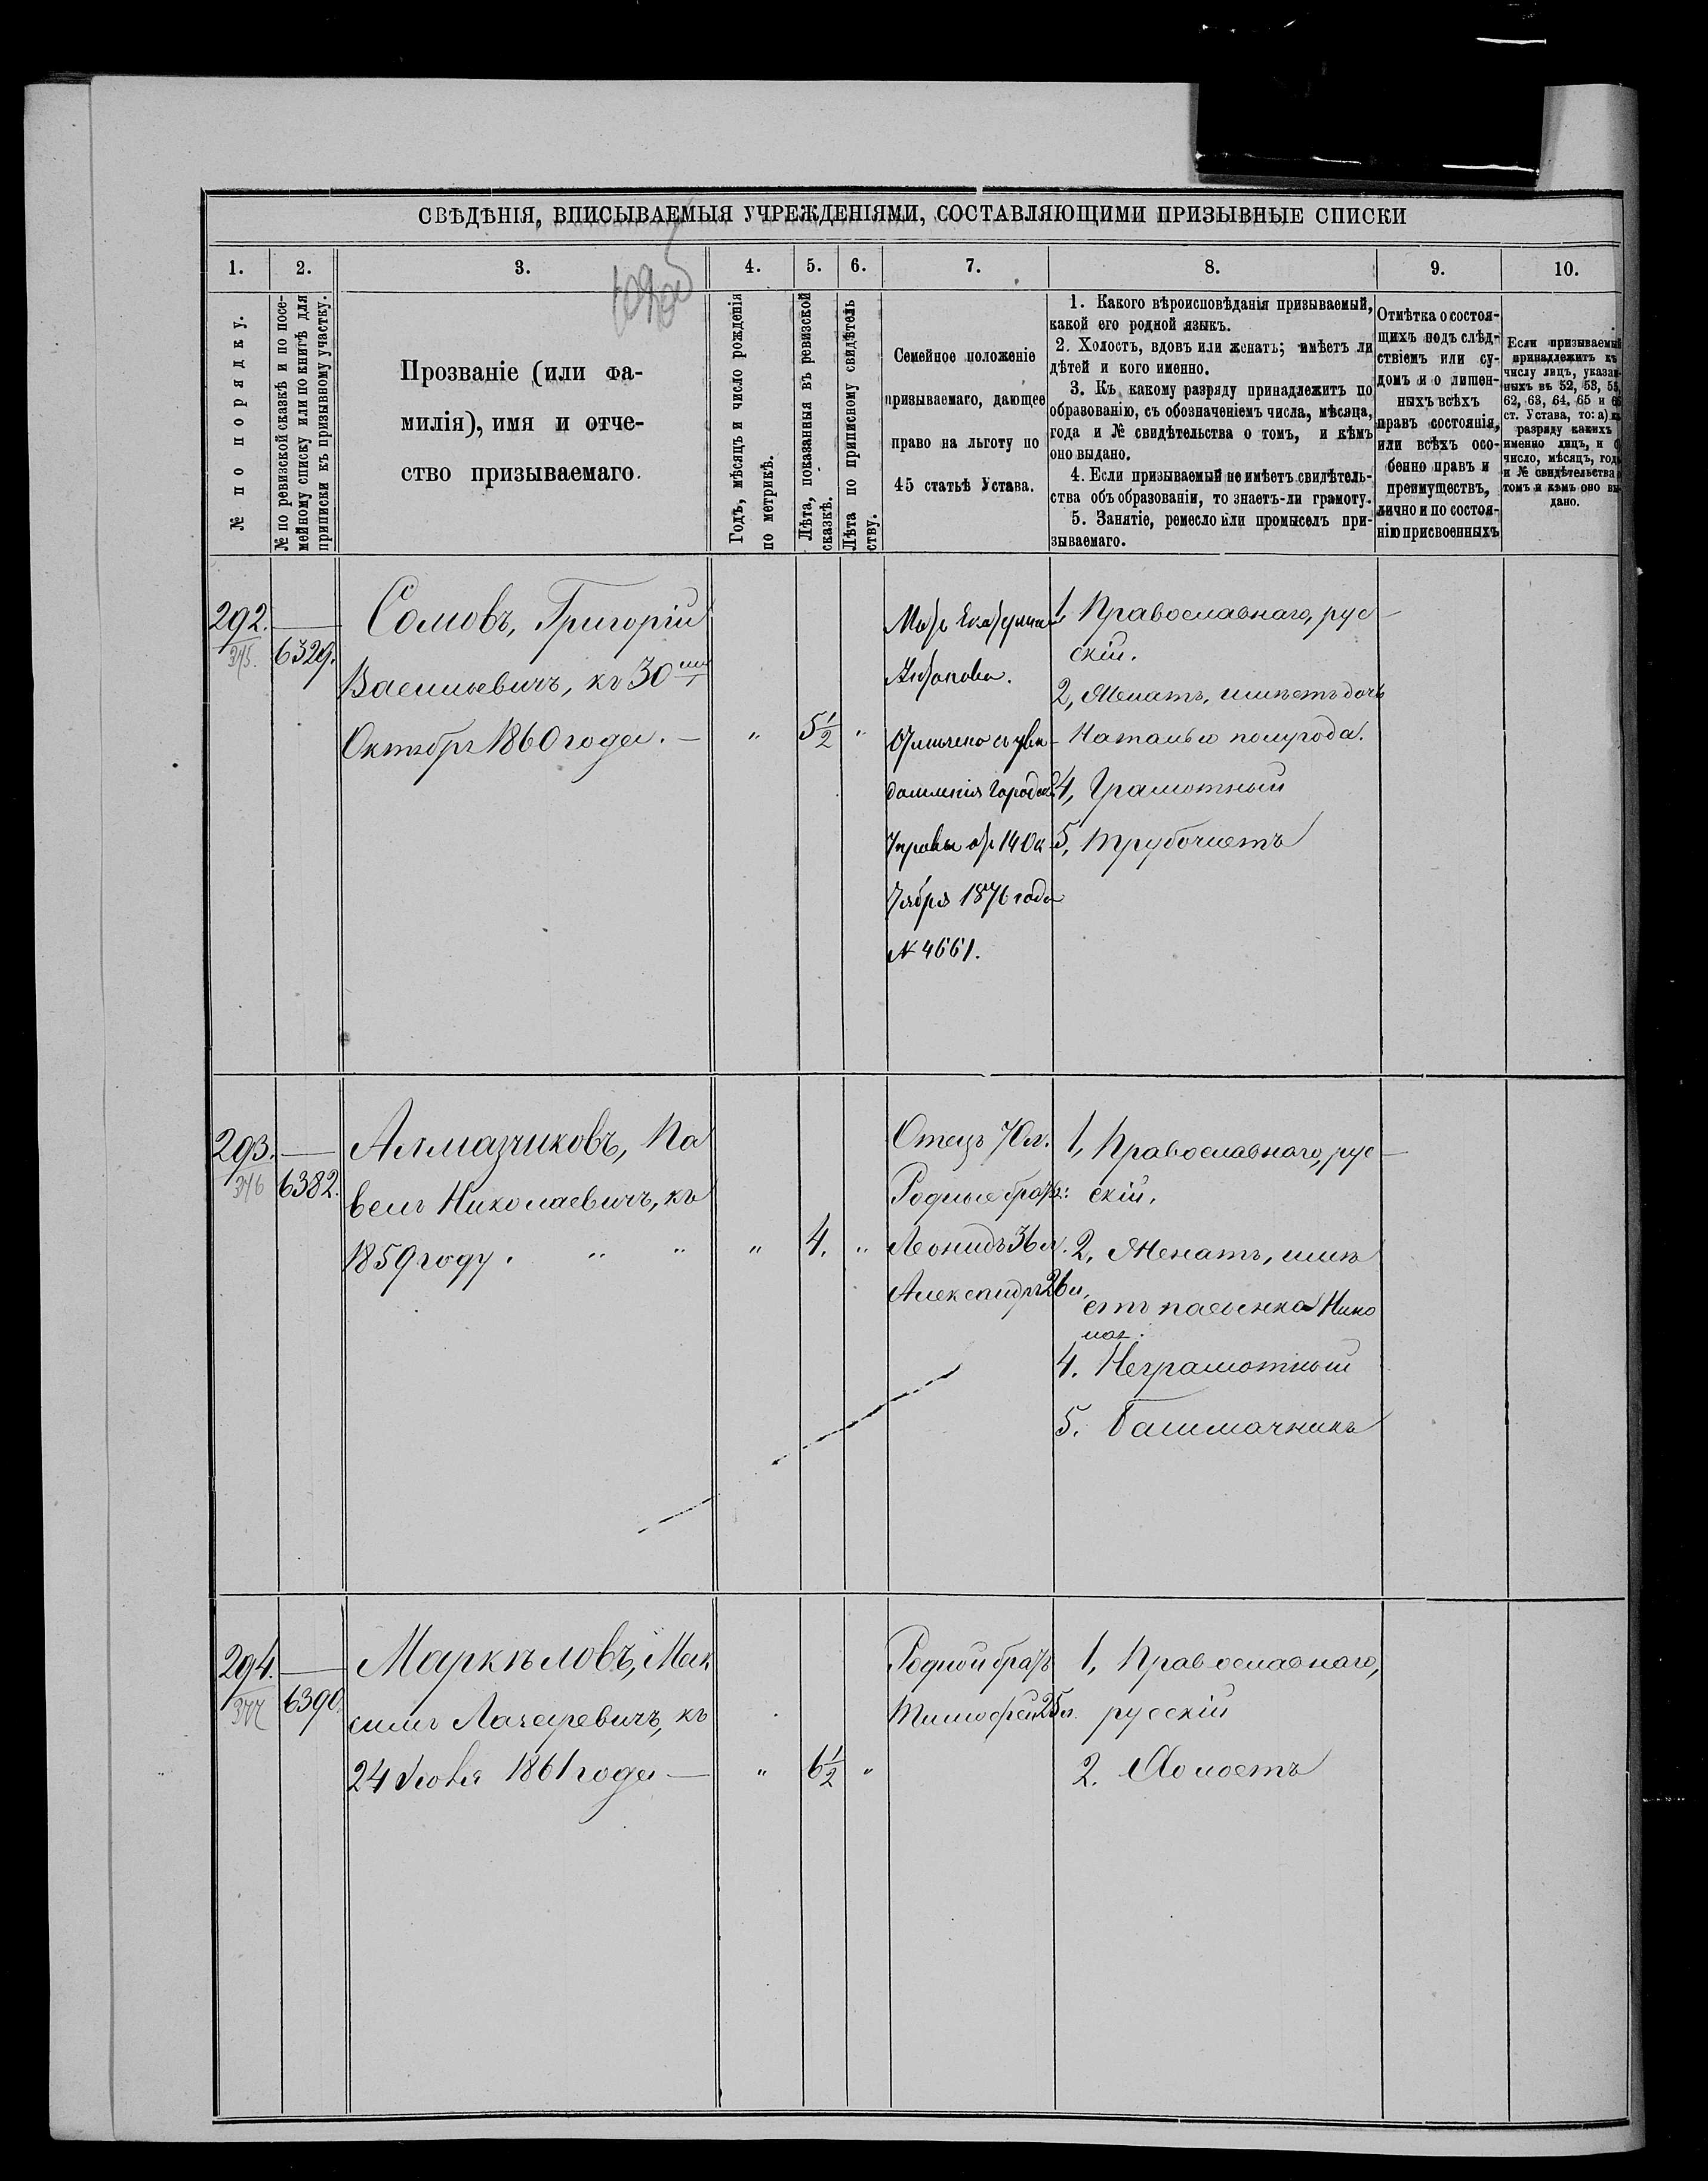 СВѢДѢНІЯ, ВПИСЫВАЕМЫЯ УЧРЕЖДЕНІЯМИ, СОСТАВЛЯЮЩИМИ ПРИЗЫВНЫЕ СПИСКИ
1. 2. 3. 4. 5. 6. 7. 8. 9. 10.
№ по порядку.
№ по ревизской сказкѣ и по посе-
мейному списку или по книгѣ для
приписки къ призывному участку.
Прозваніе (или фа-
милія), имя и отче-
ство призываемаго.
Годъ, мѣсяцъ и число рожденія
по метрикѣ.
Лѣта, показанныя въ ревизской
сказкѣ.
Лѣта по приписному свидѣтель
ству.
Семейное положеніе
призываемаго, дающее
право на льготу по
45 статьѣ Устава.
1. Какого вѣроисповѣданія призываемый,
какой его родной языкъ.
2. Холостъ, вдовъ или женатъ; имѣетъ ли
дѣтей и кого именно.
3. Къ какому разряду принадлежитъ по
образованію, съ обозначеніемъ числа, мѣсяца,
года и № свидѣтельства о томъ, и кѣмъ
оно выдано.
4. Если призываемый не имѣетъ свидѣтель-
ства объ образованіи, то знаетъ-ли грамоту.
5. Занятіе, ремесло или промыселъ при-
зываемаго.
Отмѣтка о состоя-
щихъ подъ слѣд-
ствіемъ или су-
домъ и о лишен-
ныхъ всѣхъ
правъ состоянія,
или всѣхъ осо-
бенно правъ и
преимуществъ,
лично и по состоя-
нію присвоенныхъ
Если призываемый
принадлежитъ къ
числу лицъ, указан-
ныхъ въ 52, 53, 55,
62, 63, 64, 65 и 66
ст. Устава, то: а) къ
разряду какихъ
именно лицъ, и б)
число, мѣсяцъ, годъ
и № свидѣтельства о
томъ и кѣмъ оно вы-
дано.
292.
345.
6329.
Сомовъ, Григорій
Васильевичъ, къ 30
Октября 1860 года. —
" 5½ "
Мать Екатерина
Антонова.
Отмѣчено съ увѣ-
домленія Городск.
Управы отъ 14 Ок-
тября 1876 года
№ 4661.
1, Православнаго, рус-
скій.
2, Женатъ, имѣетъ дочь
Наталью полугода.
4, Грамотный
5, Трубочистъ
293.
346
6382.
Алмазниковъ, Па
велъ Николаевичъ, къ
1859 году. " "
" 4. "
Отецъ 70 л.
Родные братья:
Леонидъ 36 л.
Александръ 26 л.
1, Православнаго, рус-
скій.
2, Женатъ, имѣ
етъ пасынка Нико
лая.
4. Неграмотный
5. Башмачникъ
294.
347
6390.
Маркѣловъ, Мак
симъ Лазаревичъ, къ
24 Іюня 1861 года —
" 6½ "
Родной братъ
Тимофей 25 л.
1, Православнаго,
русскій
2. Холостъ